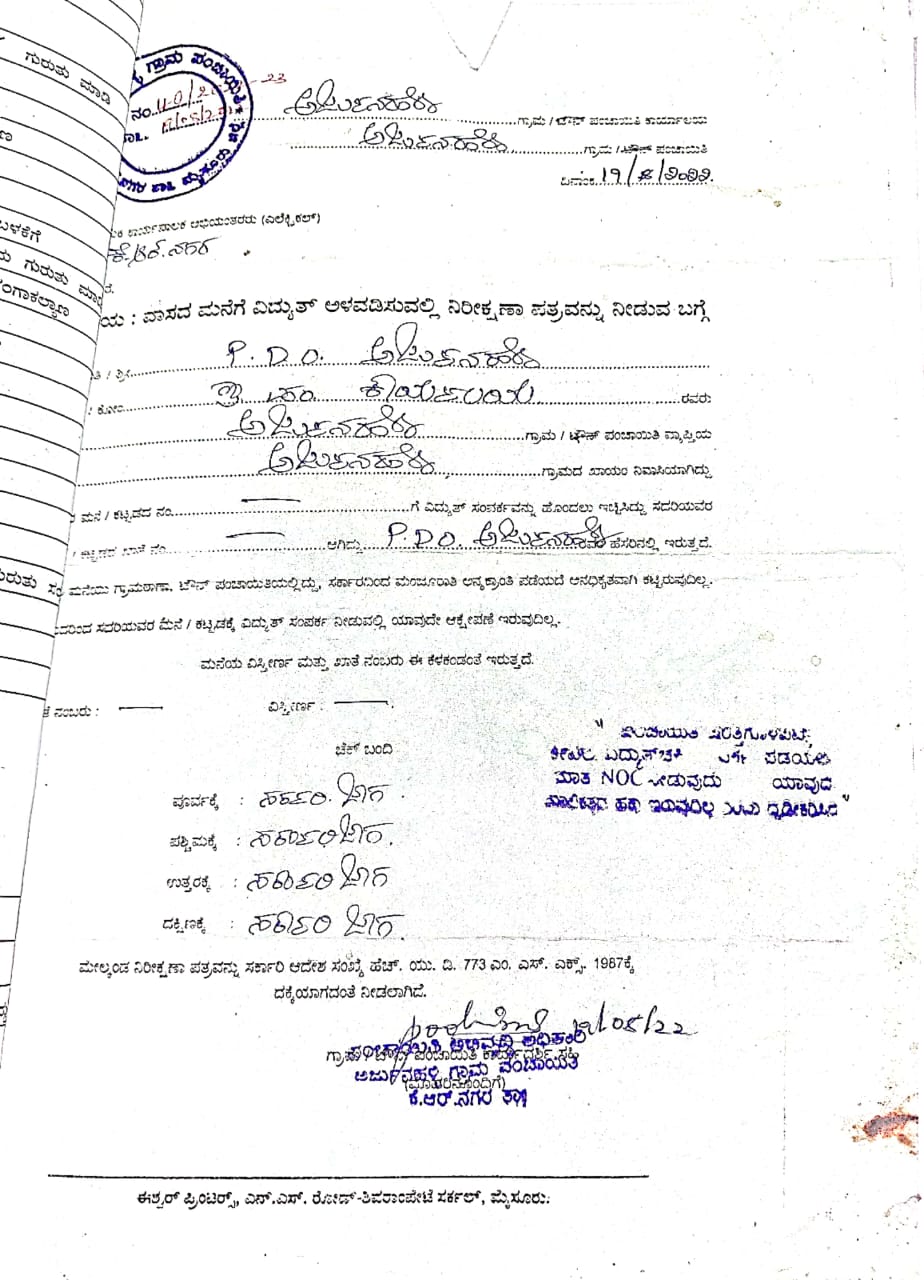 ಗುರುತು ಮಾಡಿ
ಗ್ರಾಮ ಪಂಚಾಯಿತಿ
ನಂ.
ಮೈಸೂರು
ಅರ್ಜುನಹಳ್ಳಿ ಗ್ರಾಮ / ಟೌನ್ ಪಂಚಾಯಿತಿ ಕಾರ್ಯಾಲಯ
ಅರ್ಜುನಹಳ್ಳಿ ಗ್ರಾಮ / ಟೌನ್ ಪಂಚಾಯಿತಿ
ದಿನಾಂಕ
ಕ ಕಾರ್ಯಪಾಲಕ ಅಭಿಯಂತರರು (ಎಲೆಕ್ಟ್ರಿಕಲ್)
ಕೆ.ಆರ್.ನಗರ
ಬಳಕೆಗೆ
ಗುರುತು
ಯ : ವಾಸದ ಮನೆಗೆ ವಿದ್ಯುತ್ ಅಳವಡಿಸುವಲ್ಲಿ ನಿರೀಕ್ಷಣಾ ಪತ್ರವನ್ನು ನೀಡುವ ಬಗ್ಗೆ
ತಿ / ಶ್ರೀ P.D.O. ಅರ್ಜುನಹಳ್ಳಿ
ಕೋಂ ರವರು
ಅರ್ಜುನಹಳ್ಳಿ ಗ್ರಾಮ / ಟೌನ್ ಪಂಚಾಯಿತಿ ವ್ಯಾಪ್ತಿಯ
ಅರ್ಜುನಹಳ್ಳಿ ಗ್ರಾಮದ ಖಾಯಂ ನಿವಾಸಿಯಾಗಿದ್ದು
ಮನೆ / ಕಟ್ಟಡದ ನಂ. — ಗೆ ವಿದ್ಯುತ್ ಸಂಪರ್ಕವನ್ನು ಹೊಂದಲು ಇಚ್ಛಿಸಿದ್ದು ಸದರಿಯವರ
/ ಕಟ್ಟಡದ ಖಾತೆ ನಂ. — ಆಗಿದ್ದು P.D.O. ಅರ್ಜುನಹಳ್ಳಿ ರವರ ಹೆಸರಿನಲ್ಲಿ ಇರುತ್ತದೆ.
ಗುರುತು
ಮನೆಯು ಗ್ರಾಮಠಾಣಾ, ಟೌನ್ ಪಂಚಾಯಿತಿಯಲ್ಲಿದ್ದು, ಸರ್ಕಾರದಿಂದ ಮಂಜೂರಾತಿ ಅನ್ಯಕ್ರಾಂತಿ ಪಡೆಯದೆ ಅನಧಿಕೃತವಾಗಿ ಕಟ್ಟಿರುವುದಿಲ್ಲ.
ದರಿಂದ ಸದರಿಯವರ ಮನೆ / ಕಟ್ಟಡಕ್ಕೆ ವಿದ್ಯುತ್ ಸಂಪರ್ಕ ನೀಡುವಲ್ಲಿ ಯಾವುದೇ ಆಕ್ಷೇಪಣೆ ಇರುವುದಿಲ್ಲ.
ಮನೆಯ ವಿಸ್ತೀರ್ಣ ಮತ್ತು ಖಾತೆ ನಂಬರು ಈ ಕೆಳಕಂಡಂತೆ ಇರುತ್ತದೆ.
ತೆ ನಂಬರು : — ವಿಸ್ತೀರ್ಣ : —
ಚೆಕ್ ಬಂದಿ
ಪೂರ್ವಕ್ಕೆ : ಸರ್ಕಾರಿ ಜಾಗ
ಪಶ್ಚಿಮಕ್ಕೆ : ಸರ್ಕಾರಿ ಜಾಗ
ಉತ್ತರಕ್ಕೆ : ಸರ್ಕಾರಿ ಜಾಗ
ದಕ್ಷಿಣಕ್ಕೆ : ಸರ್ಕಾರಿ ಜಾಗ
ಮಾತ್ರ NOC ನೀಡುವುದು ಯಾವುದೇ
ಮೇಲ್ಕಂಡ ನಿರೀಕ್ಷಣಾ ಪತ್ರವನ್ನು ಸರ್ಕಾರಿ ಆದೇಶ ಸಂಖ್ಯೆ ಹೆಚ್. ಯು. ಡಿ. 773 ಎಂ. ಎಸ್. ಎಕ್ಸ್. 1987ಕ್ಕೆ
ದಕ್ಕೆಯಾಗದಂತೆ ನೀಡಲಾಗಿದೆ.
12/05/22
ಪಂಚಾಯಿತಿ ಅಭಿವೃದ್ಧಿ ಅಧಿಕಾರಿ
ಅರ್ಜುನಹಳ್ಳಿ ಗ್ರಾಮ ಪಂಚಾಯಿತಿ
(ಮೊಹರಿನೊಂದಿಗೆ)
ಕೆ.ಆರ್.ನಗರ ತಾ||
ಈಶ್ವರ್ ಪ್ರಿಂಟರ್ಸ್, ಎನ್.ಎಸ್. ರೋಡ್-ಶಿವರಾಂಪೇಟೆ ಸರ್ಕಲ್, ಮೈಸೂರು.